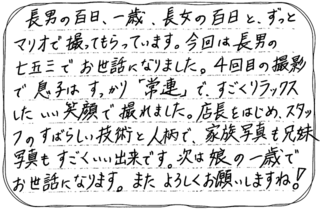 長男の百日、一歳、長女の百日と、ずっと
マリオで撮ってもらっています。今回は長男の
七五三でお世話になりました。4回目の撮影
で息子はすっかり「常連」で、すごくリラックス
したいい笑顔で撮れました。店長をはじめ、スタッ
フのすばらしい技術と人柄で、家族写真も兄妹
写真もすごくいい出来です。次は娘の一歳で
お世話になります。またよろしくお願いしますね!